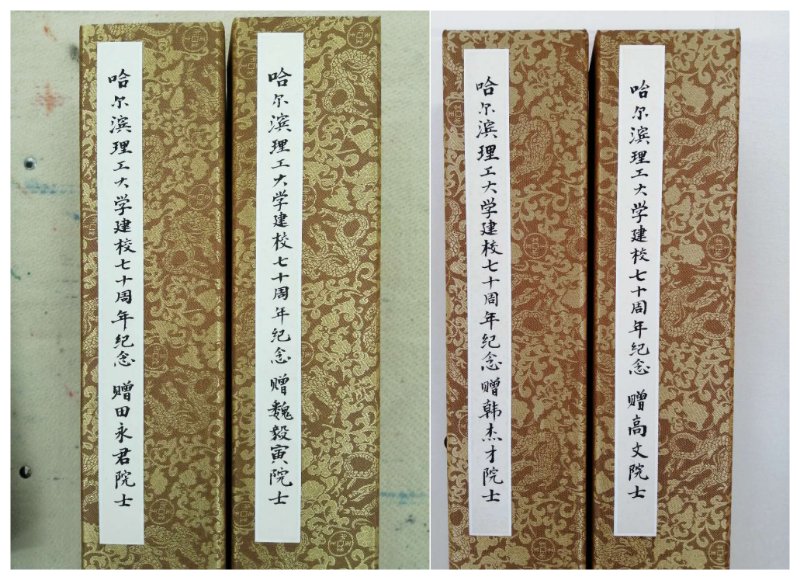 哈尔滨理工大学建校七十周年纪念 赠田永君院士
哈尔滨理工大学建校七十周年纪念 赠魏毅寅院士
哈尔滨理工大学建校七十周年纪念 赠韩杰才院士
哈尔滨理工大学建校七十周年纪念 赠高文院士